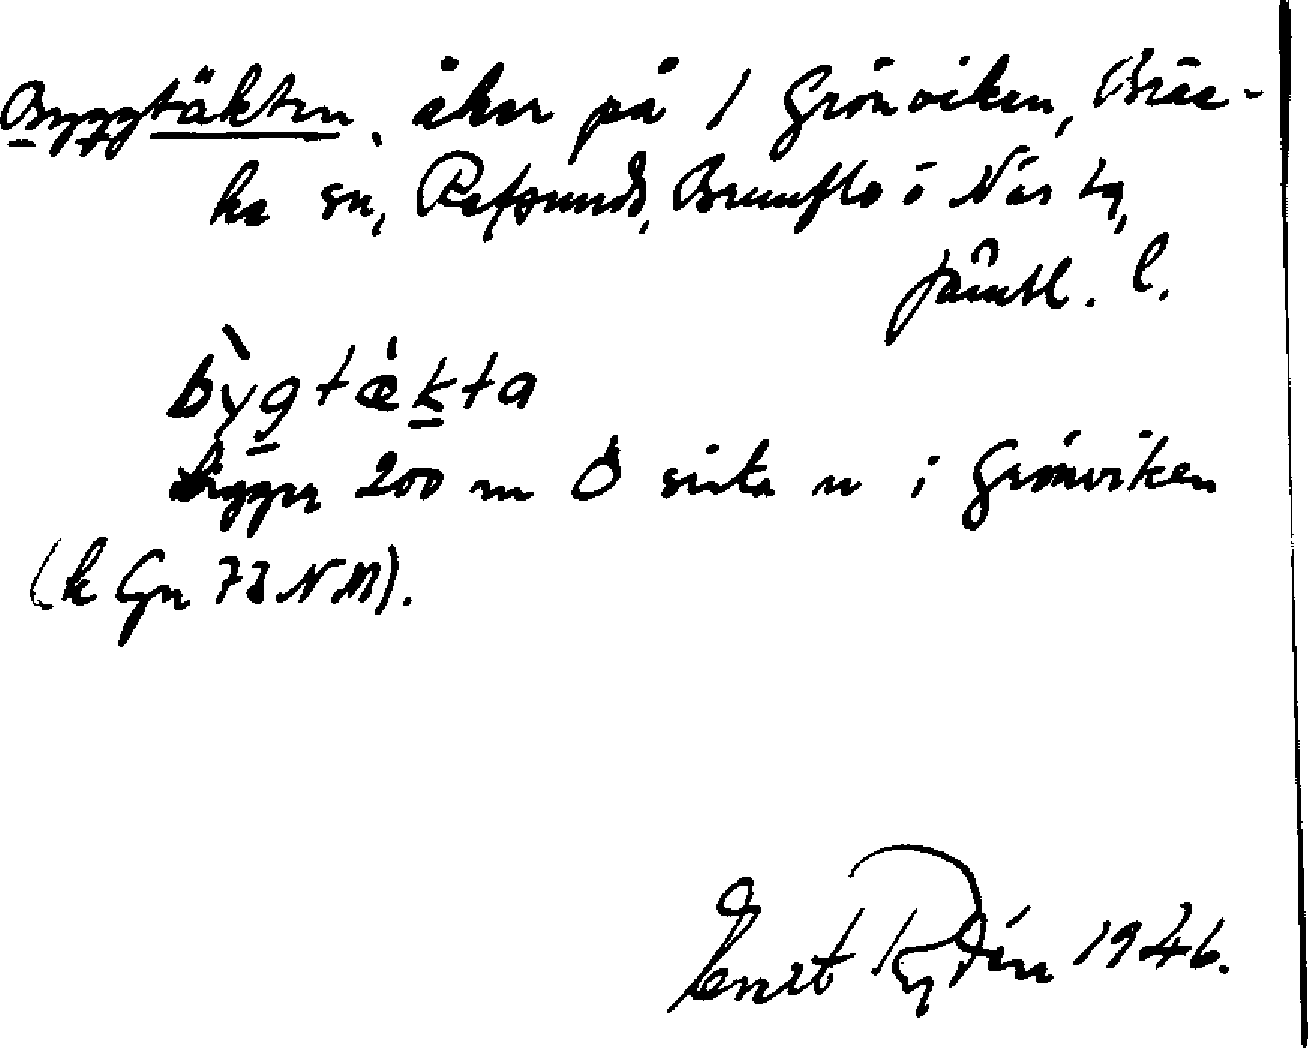 Byggtäkten, åker på 1 Grönviken, Bräc-
ke sn, Refsunds, Brunflo o Näs tg,
Jämtl. l.
bỳgtækta
ligger 200 m Ö sista n i Grönviken
(k Gn 73 NM).
Ernst Rydén 1946.